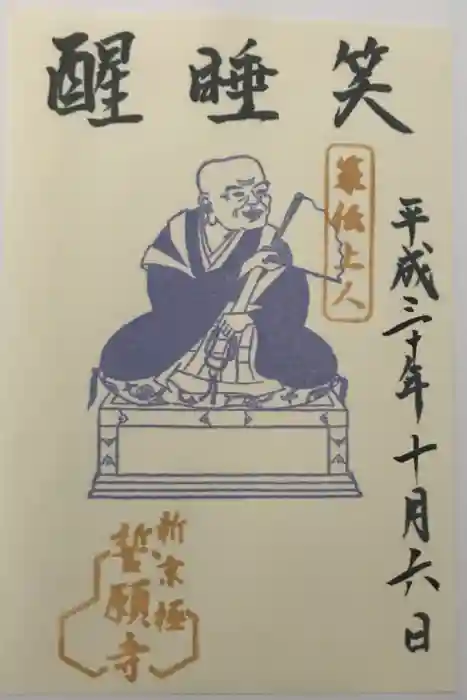 笑睡醒
平成三十年十月六日
策伝上人
新京極
誓願寺